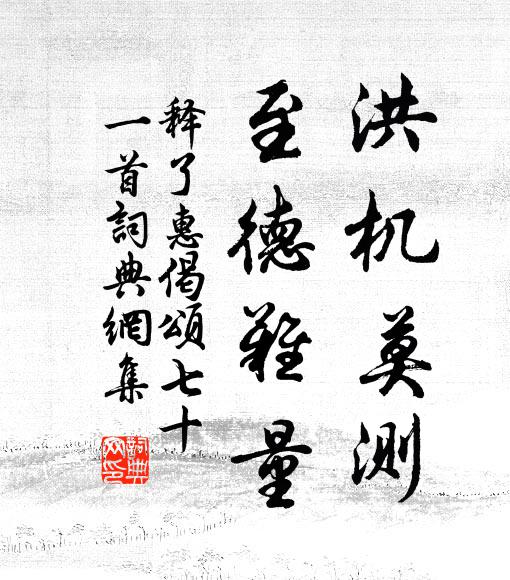 洪机莫测
至德难量
释了惠偈颂七十
一首詞典網集
詞典网印